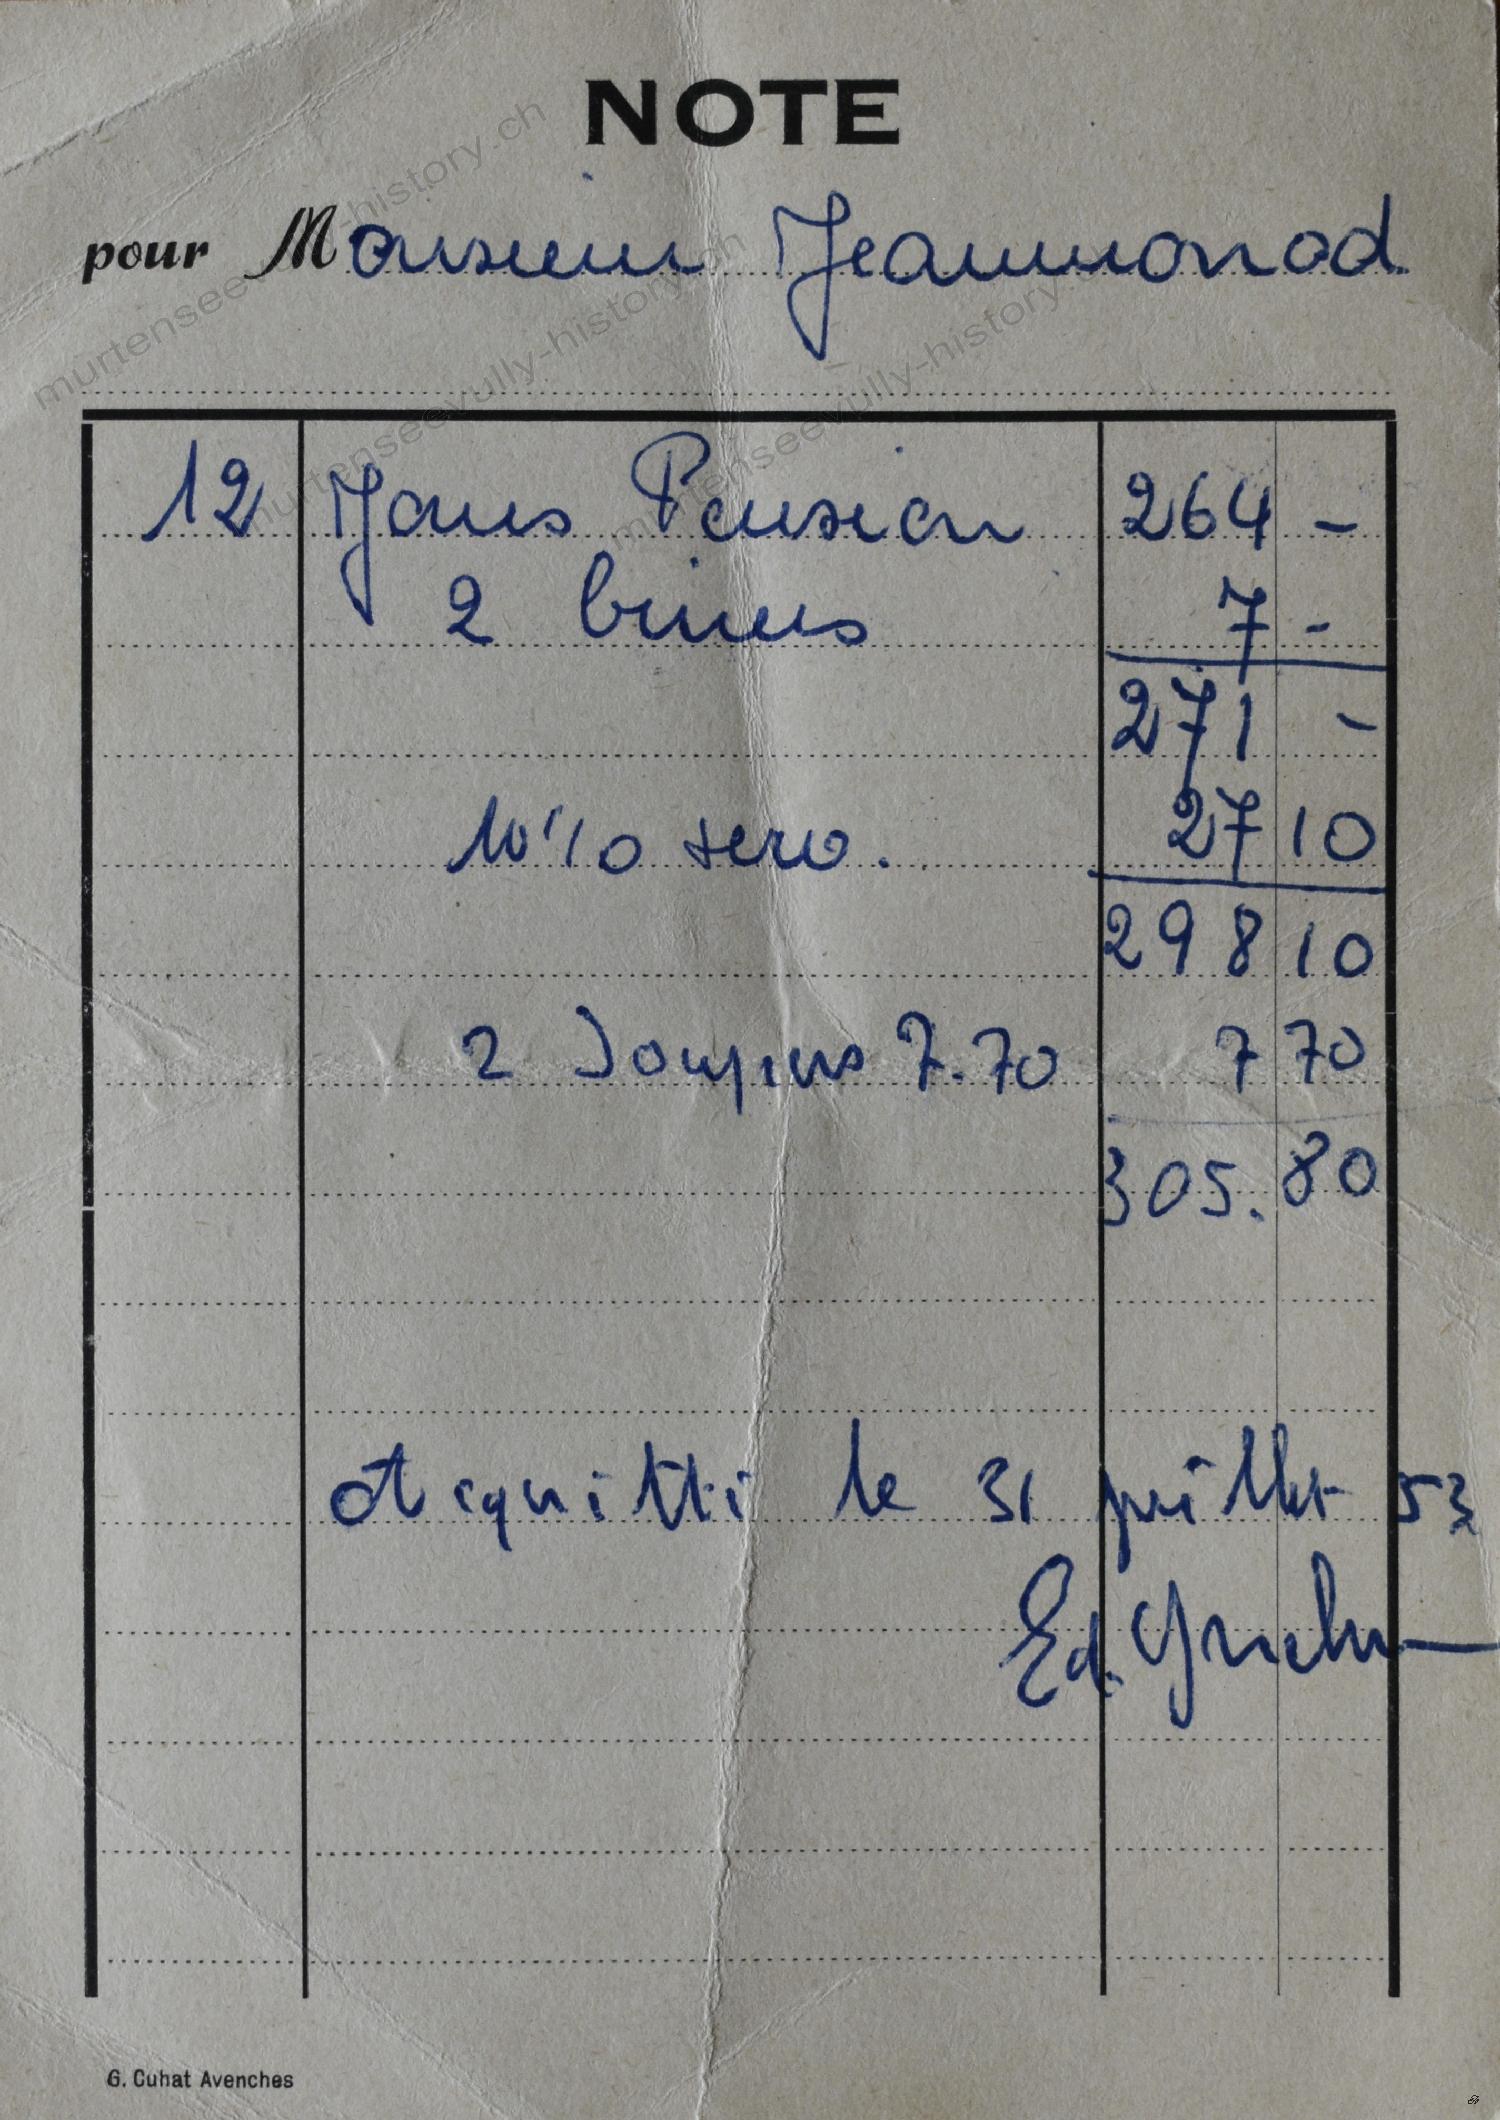 NOTE
pour Monsieur Jeanmonod
12 Jours Pension 264 -
2 7 -
271 -
10 % serv. 27 10
298 10
2 7.70 7 70
305.80
Acquitté le 31 juillet 53
Ed.
G. Cuhat Avenches
murtenseevully-history.ch
murtenseevully-history.ch
murtenseevully-history.ch